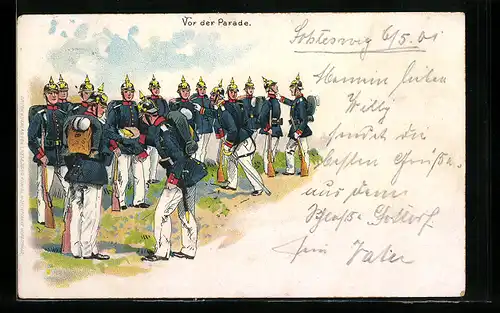 Vor der Parade.
Schleswig 6/5. 01
Meinem lieben
Willy
sendet die
besten Grüße
aus dem
Schloße Gottorf
Dein Vater